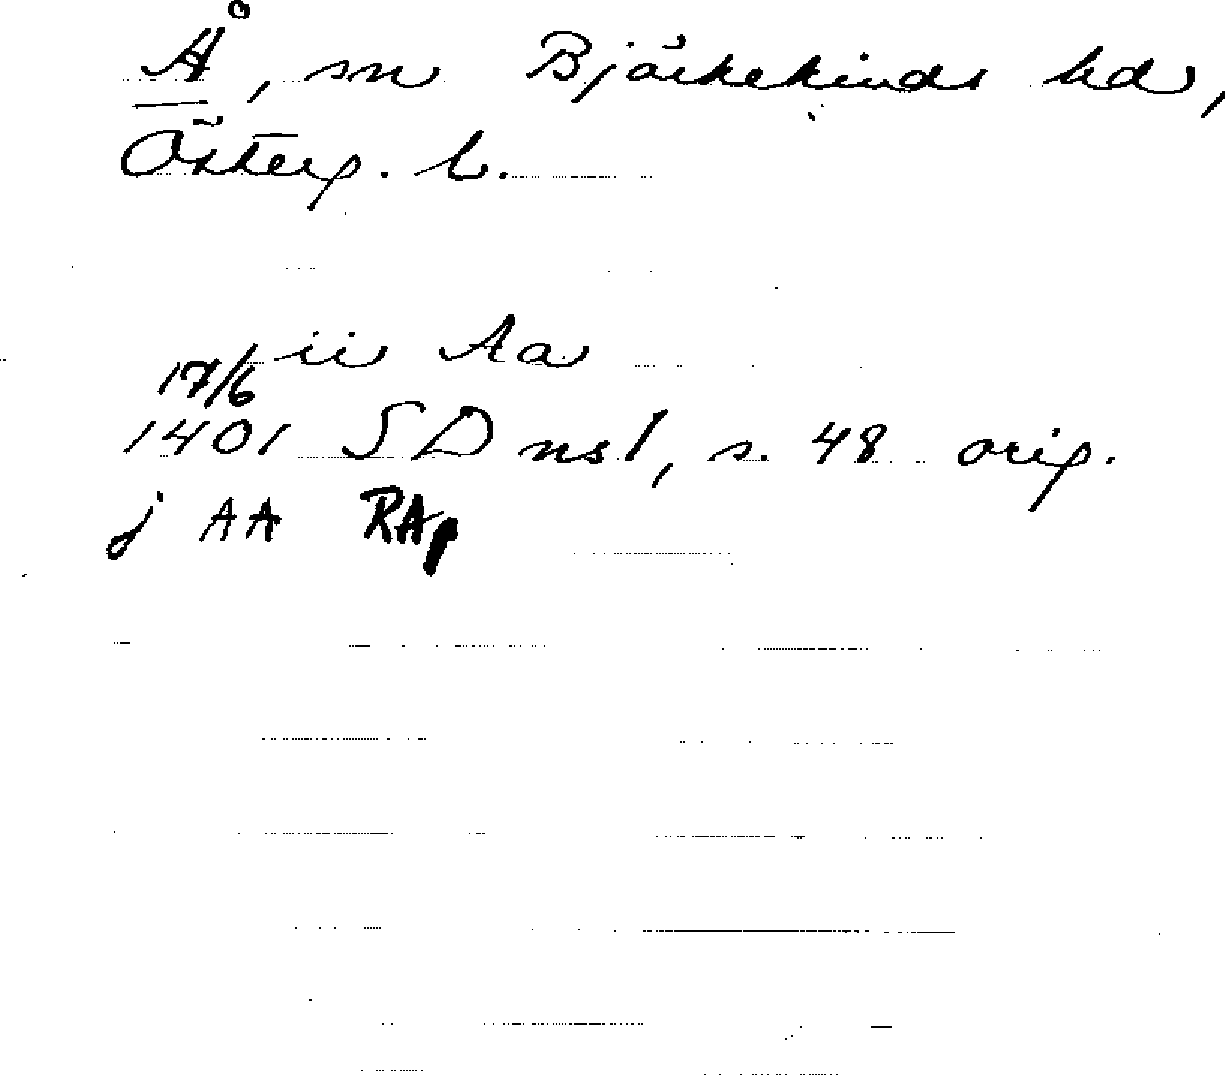 Å, sn Bjärkekinds hd,
Österg. l.
ii Aa
17/6
1401 SD ns 1, s. 48 orig.
j AA RAp